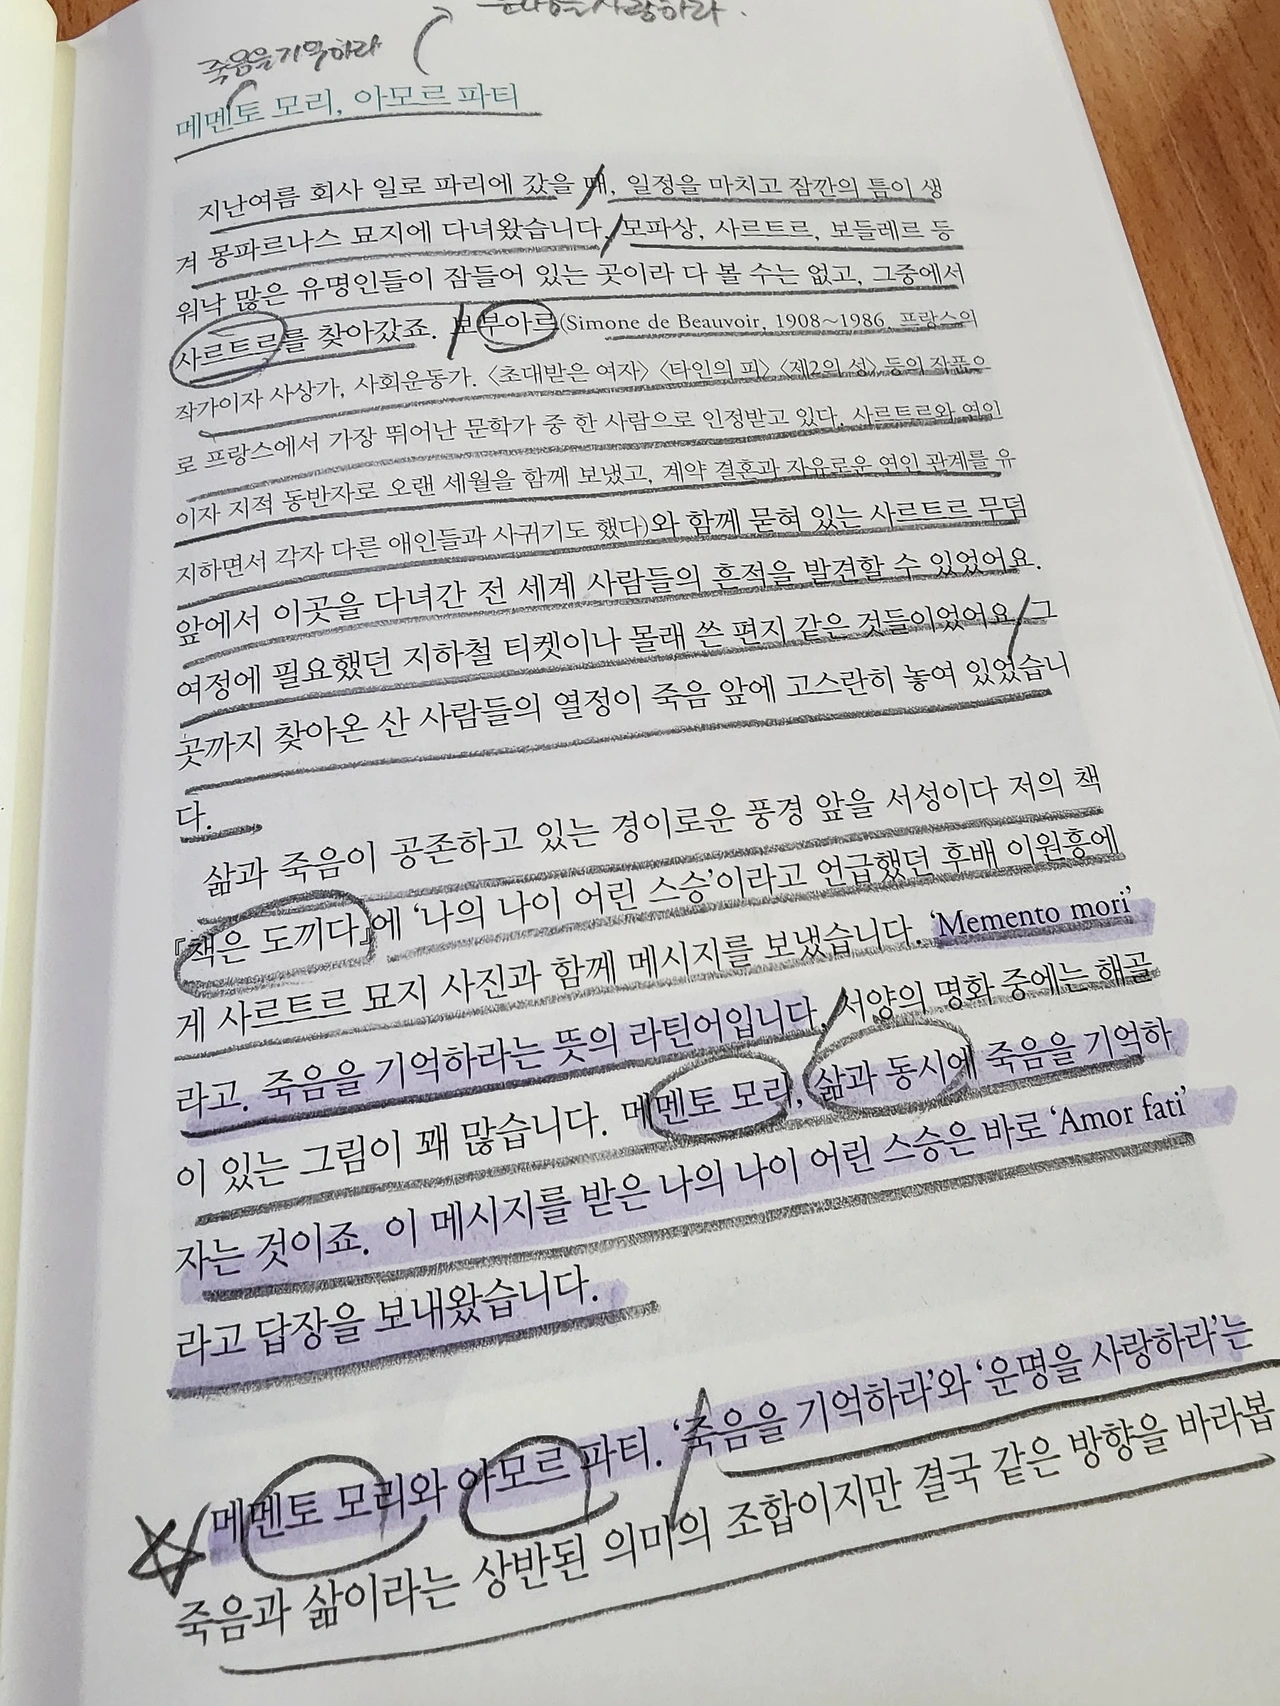 운명을 사랑하라.
죽음을 기억하라
메멘토 모리, 아모르 파티
지난여름 회사 일로 파리에 갔을 때, 일정을 마치고 잠깐의 틈이 생
겨 몽파르나스 묘지에 다녀왔습니다. 모파상, 사르트르, 보들레르 등
워낙 많은 유명인들이 잠들어 있는 곳이라 다 볼 수는 없고, 그중에서
사르트르를 찾아갔죠. 보부아르(Simone de Beauvoir, 1908~1986, 프랑스의
작가이자 사상가, 사회운동가. 〈초대받은 여자〉 〈타인의 피〉 〈제2의 성〉 등의 작품으
로 프랑스에서 가장 뛰어난 문학가 중 한 사람으로 인정받고 있다. 사르트르와 연인
이자 지적 동반자로 오랜 세월을 함께 보냈고, 계약 결혼과 자유로운 연인 관계를 유
지하면서 각자 다른 애인들과 사귀기도 했다)와 함께 묻혀 있는 사르트르 무덤
앞에서 이곳을 다녀간 전 세계 사람들의 흔적을 발견할 수 있었어요.
여정에 필요했던 지하철 티켓이나 몰래 쓴 편지 같은 것들이었어요. 그
곳까지 찾아온 산 사람들의 열정이 죽음 앞에 고스란히 놓여 있었습니
다.
삶과 죽음이 공존하고 있는 경이로운 풍경 앞을 서성이다 저의 책
『책은 도끼다』에 ‘나의 나이 어린 스승’이라고 언급했던 후배 이원흥에
게 사르트르 묘지 사진과 함께 메시지를 보냈습니다. ‘Memento mori’
라고. 죽음을 기억하라는 뜻의 라틴어입니다. 서양의 명화 중에는 해골
이 있는 그림이 꽤 많습니다. 메멘토 모리, 삶과 동시에 죽음을 기억하
자는 것이죠. 이 메시지를 받은 나의 나이 어린 스승은 바로 ‘Amor fati’
라고 답장을 보내왔습니다.
메멘토 모리와 아모르 파티. ‘죽음을 기억하라’와 ‘운명을 사랑하라’는
죽음과 삶이라는 상반된 의미의 조합이지만 결국 같은 방향을 바라봅